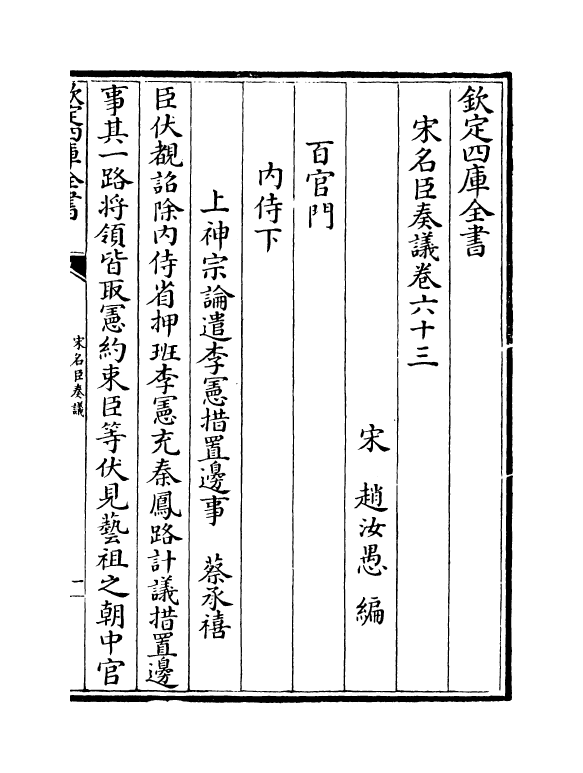 欽定四庫全書
宋名臣奏議卷六十三
宋 趙汝愚 編
百官門
内侍下
上神宗論遣李憲措置邊事 蔡承禧
臣伏覩詔除内侍省押班李憲充秦鳳路計議措置邊
事其一路將領皆取憲約束臣等伏見藝祖之朝中官
欽定四庫全書
宋名臣奏議
一